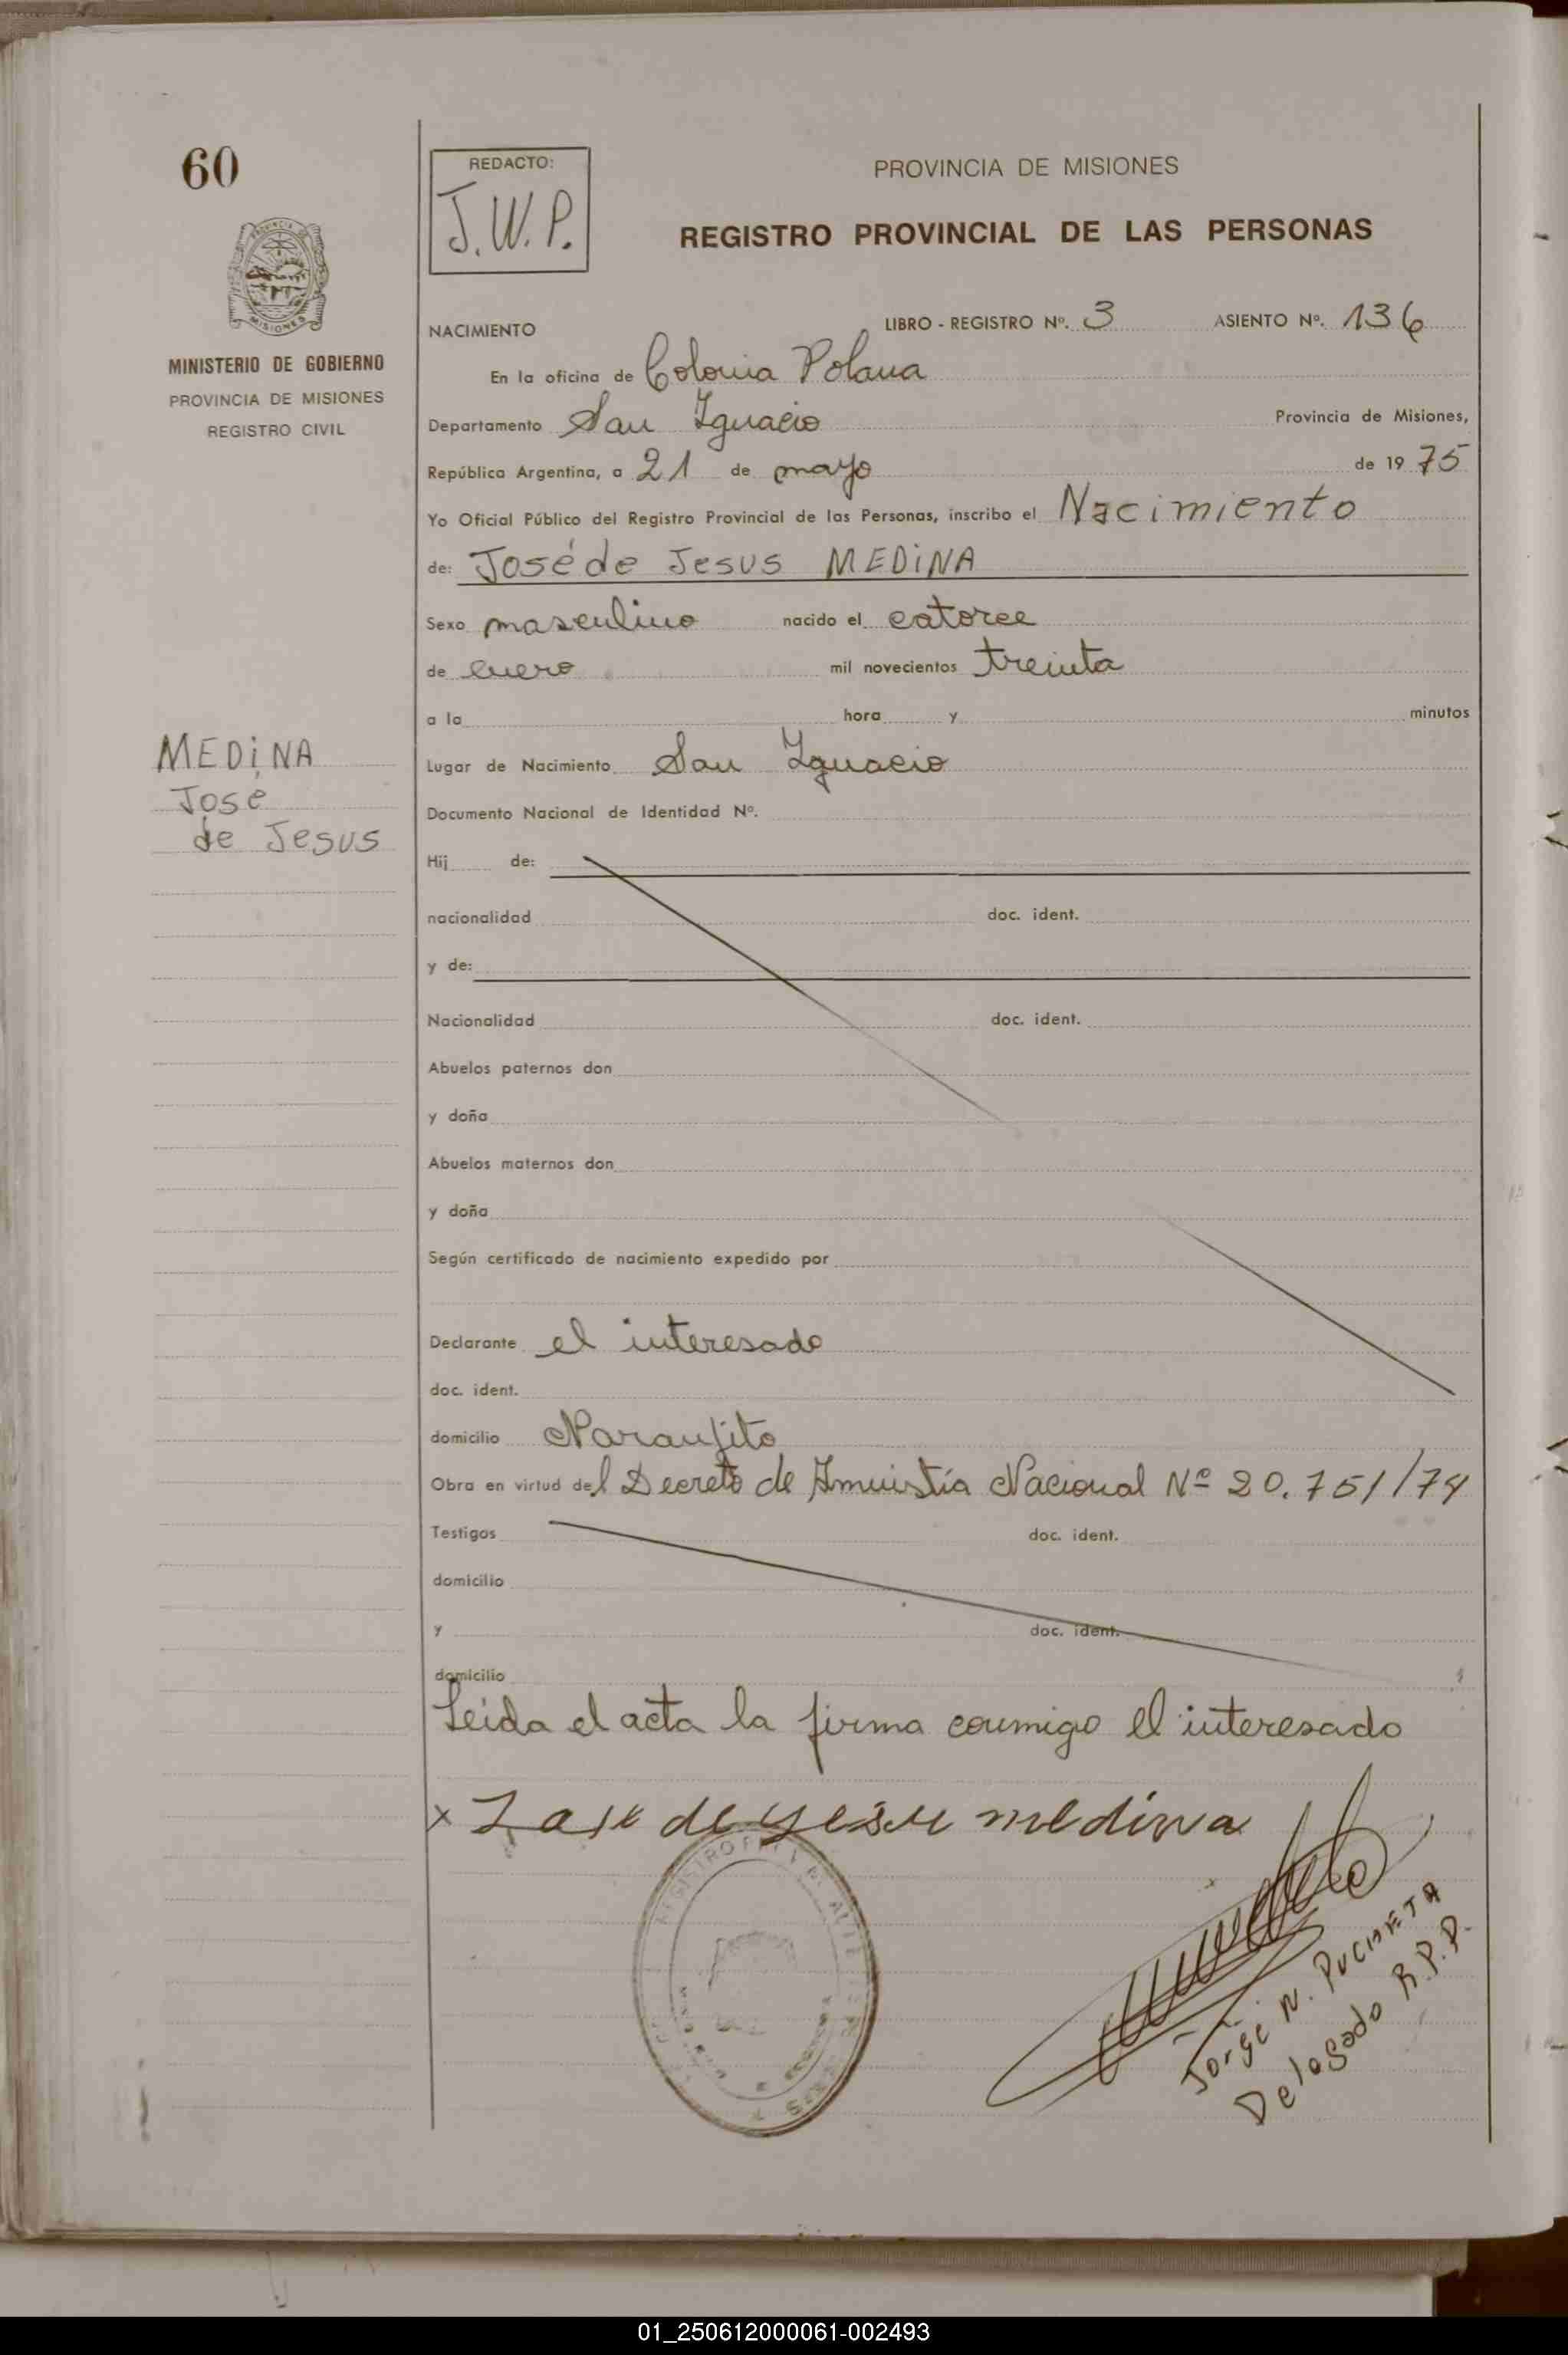 60
REDACTO:
J.W.P.
PROVINCIA DE MISIONES
REGISTRO PROVINCIAL DE LAS PERSONAS
MISIONES
MINISTERIO DE GOBIERNO
PROVINCIA DE MISIONES
REGISTRO CIVIL
NACIMIENTO LIBRO - REGISTRO Nº. 3 ASIENTO Nº. 136
En la oficina de Colonia Polana
Departamento San Ignacio Provincia de Misiones,
República Argentina, a 21 de mayo de 1975
Yo Oficial Público del Registro Provincial de las Personas, inscribo el Nacimiento
de: José de Jesus MEDINA
Sexo masculino nacido el catorce
de enero mil novecientos treinta
a la hora y minutos
MEDINA
José
de Jesus
Lugar de Nacimiento San Ignacio
Documento Nacional de Identidad Nº.
Hij de:
nacionalidad doc. ident.
y de:
Nacionalidad doc. ident.
Abuelos paternos don
y doña
Abuelos maternos don
y doña
Según certificado de nacimiento expedido por
Declarante el interesado
doc. ident.
domicilio Naranjito
Obra en virtud del Decreto de Amnistía Nacional Nº 20.751/74
Testigos doc. ident.
domicilio
y doc. ident.
domicilio
Leida el acta la firma conmigo el interesado
x Jose de Yesu medina
Jorge W. PUCHETA
Delegado R.P.P.
01_250612000061-002493